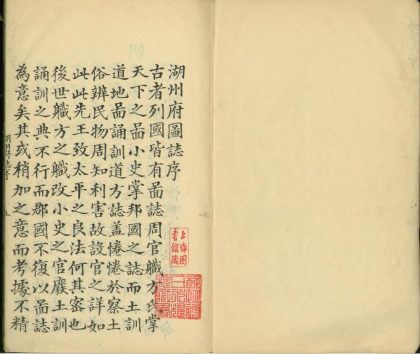 湖州府圖誌序
古者列國皆有啚誌周官職方氏掌
天下之啚小史掌邦國之誌而土訓
道地啚誦訓道方誌蓋惓惓於察土
俗辨民物周知利害故設官之詳如
此此先王致太平之良法何其審也
後世職方之職改小史之官廢土訓
誦訓之典不行而郡國不復以啚誌
為意矣其或稍加之意而考據不精
上海圖
書館藏